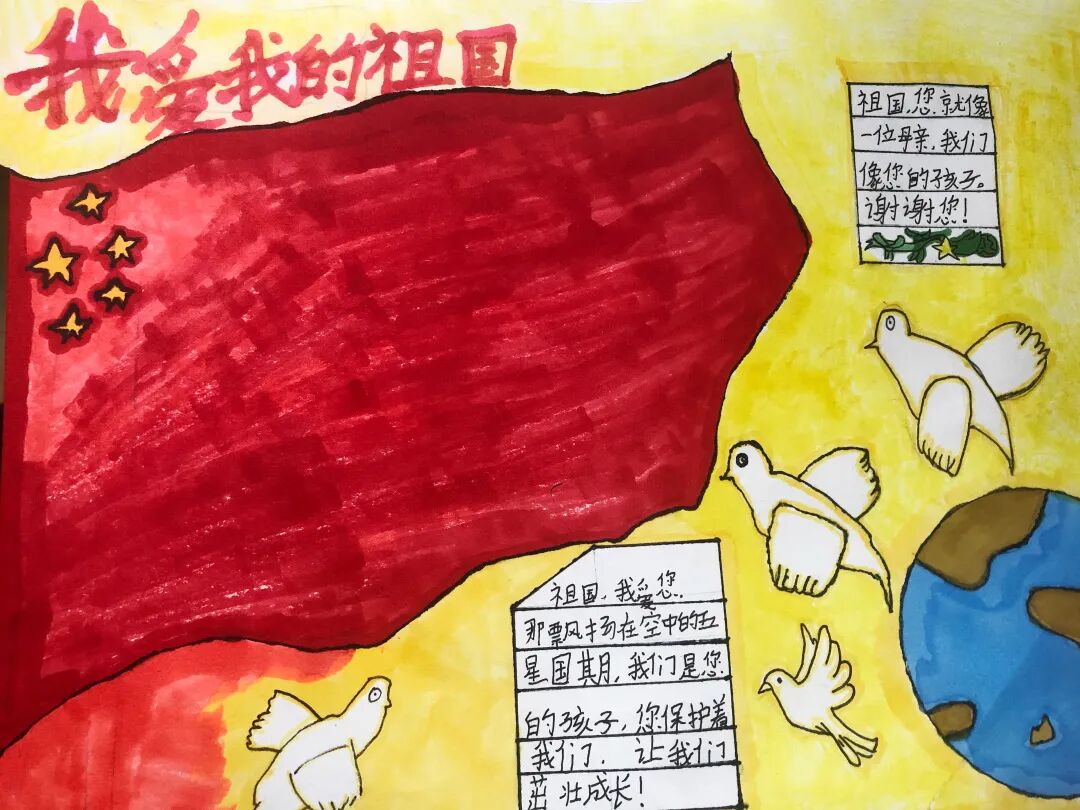 我爱我的祖国
祖国，您就像
一位母亲，我们
像您的孩子。
谢谢您！
祖国，我爱您
那飘扬在空中的五
星国期，我们是您
的孩子，您保护着
我们．让我们
茁壮成长！